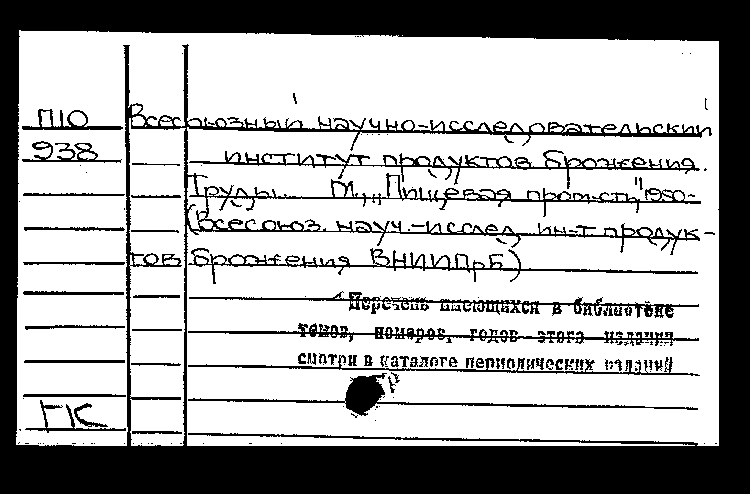 П10 Всесоюзный научно-исследовательский
938 институт продуктов брожения.
Труды. М., „Пищевая пром-сть", 1950-
(Всесоюз. науч.-исслед. ин-т продук-
тов брожения ВНИИПрБ)
Перечень имеющихся в библиотеке
томов, номеров, годов этого издания
смотри в каталоге периодических изданий
ГК